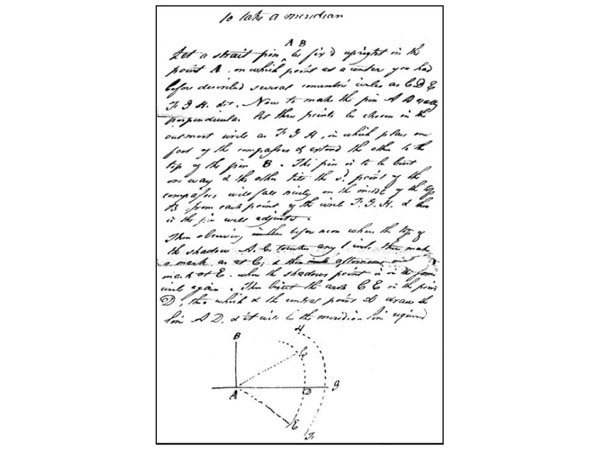 to take a meridian
A B
Let a strait pin be fix'd upright in the
point A, on which point as a center you had
before described several concentric circles as C D E
F. G H. &c. Now to make the pin A B exactly
perpendicular let three points be chosen in the
outmost circle as F. G H, in which place one
foot of the compasses & extend the other to the
top of the pin B. The pin is to be bent
one way & the other till the point of the
compasses will fall nicely on the middle of the top
B from each point of the circle F. G. H. & then
is the pin well adjusted.
Then observing before noon when the top of
the shadow A. C. touches any 1 circle, then make
a mark as at C, & then afternoon
mark at E. when the shadows point is in the same
circle again. Then bisect the arch C E in the point
D, thro which & the central point A draw the
line A D. & it will be the meridian line required
H
B
C
A
D
G
E
F